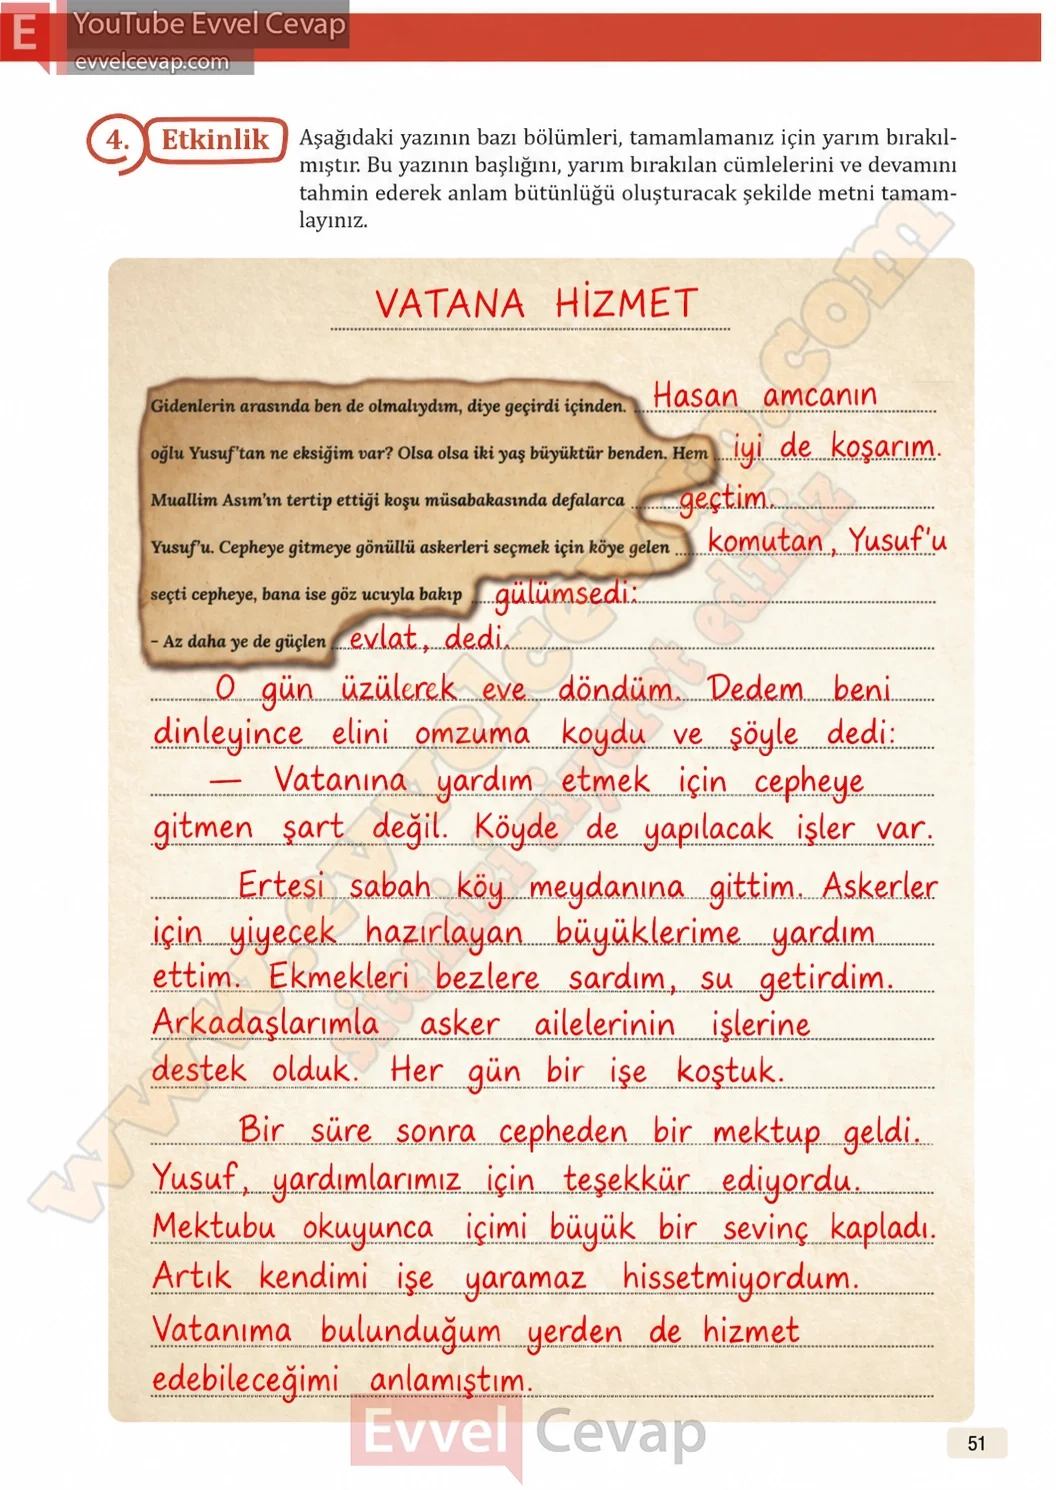 E YouTube Evvel Cevap
evvelcevap.com
4. Etkinlik
Aşağıdaki yazının bazı bölümleri, tamamlamanız için yarım bırakıl-
mıştır. Bu yazının başlığını, yarım bırakılan cümlelerini ve devamını
tahmin ederek anlam bütünlüğü oluşturacak şekilde metni tamam-
layınız.
VATANA HİZMET
Gidenlerin arasında ben de olmalıydım, diye geçirdi içinden. Hasan amcanın
oğlu Yusuf'tan ne eksiğim var? Olsa olsa iki yaş büyüktür benden. Hem iyi de koşarım.
Muallim Asım'ın tertip ettiği koşu müsabakasında defalarca geçtim.
Yusuf'u. Cepheye gitmeye gönüllü askerleri seçmek için köye gelen komutan, Yusuf'u
seçti cepheye, bana ise göz ucuyla bakıp gülümsedi:
- Az daha ye de güçlen evlat, dedi.
O gün üzülerek eve döndüm. Dedem beni
dinleyince elini omzuma koydu ve şöyle dedi:
— Vatanına yardım etmek için cepheye
gitmen şart değil. Köyde de yapılacak işler var.
Ertesi sabah köy meydanına gittim. Askerler
için yiyecek hazırlayan büyüklerime yardım
ettim. Ekmekleri bezlere sardım, su getirdim.
Arkadaşlarımla asker ailelerinin işlerine
destek olduk. Her gün bir işe koştuk.
Bir süre sonra cepheden bir mektup geldi.
Yusuf, yardımlarımız için teşekkür ediyordu.
Mektubu okuyunca içimi büyük bir sevinç kapladı.
Artık kendimi işe yaramaz hissetmiyordum.
Vatanıma bulunduğum yerden de hizmet
edebileceğimi anlamıştım.
www.evvelcevap.com
sitemizi ziyaret ediniz
Evvel Cevap
51